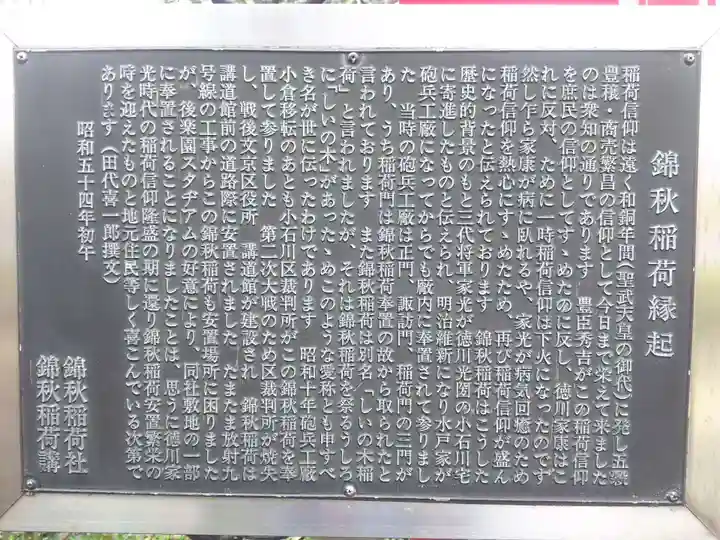 錦秋稲荷縁起
稲荷信仰は遠く和銅年間（聖武天皇の御代）に発し五穀
豊穣・商売繁昌の信仰として今日まで栄えて来ました
のは衆知の通りであります　豊臣秀吉がこの稲荷信仰
を庶民の信仰としてすゝめたのに反し、徳川家康はこ
れに反対、ために一時稲荷信仰は下火になったのです
然し乍ら家康が病に臥れるや、家光が病気回癒のため
稲荷信仰を熱心にすゝめたため、再び稲荷信仰が盛ん
になったと伝えられております　錦秋稲荷はこうした
歴史的背景のもと三代将軍家光が徳川光圀の小石川宅
に寄進したものと伝えられ、明治維新になり水戸家が
砲兵工廠になってからでも廠内に奉置されて参りまし
た　当時の砲兵工廠は正門、諏訪門、稲荷門の三門が
あり、うち稲荷門は錦秋稲荷奉置の故から取られたと
言われております　また錦秋稲荷は別名「しいの木稲
荷」と言われましたが、それは錦秋稲荷を祭るうしろ
に「しいの木」があったゝめこのような愛称とも申すべ
き名が世に伝ったわけであります　昭和十年砲兵工廠
小倉移転のあとも小石川区裁判所がこの錦秋稲荷を奉
置して参りました　第二次大戦のため区裁判所が焼失
し、戦後文京区役所、講道館が建設され、錦秋稲荷は
講道館前の道路際に安置されました　たまたま放射九
号線の工事からこの錦秋稲荷も安置場所に困りました
が、後楽園スタヂアムの好意により、同社敷地の一部
に奉置されることになりましたことは、思うに徳川家
光時代の稲荷信仰隆盛の期に還り錦秋稲荷安置繁栄の
時を迎えたものと地元住民等しく喜こんでいる次第で
あります（田代喜一郎撰文）
昭和五十四年初午
錦秋稲荷社
錦秋稲荷講